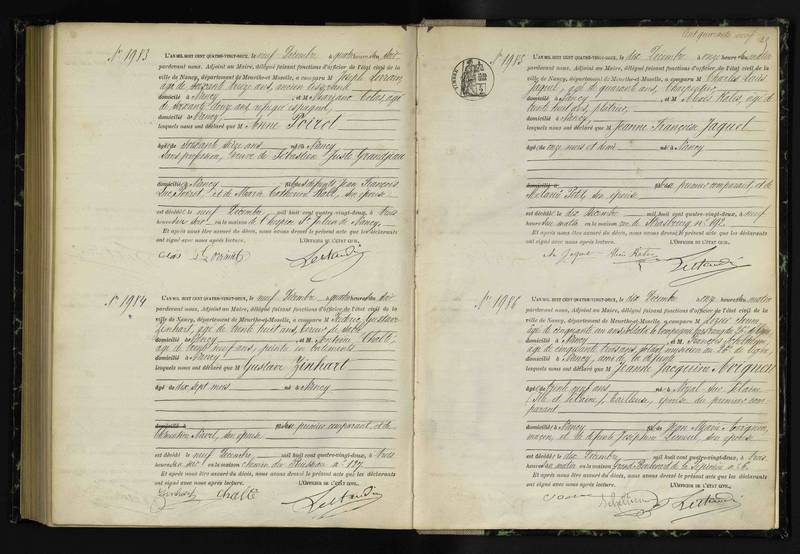 Nº 1983
L'AN MIL HUIT CENT QUATRE-VINGT-DEUX, le neuf Décembre à quatre heures du soir
pardevant nous, Adjoint au Maire, délégué faisant fonctions d'officier de l'état civil de la
ville de Nancy, département de Meurthe-et-Moselle, a comparu M Joseph Lorrain
âgé de soixante treize ans, ancien
domicilié à Nancy et M Mariano
de soixante deux ans, réfugié espagnol,
domicilié à Nancy
lesquels nous ont déclaré que M Anne Poirot
âgée de soixante seize ans née à Nancy
sans profession, veuve de Sébastien Juste Grandjean
domiciliée à Nancy fille des défunts Jean François
Poirot, et de Marie Catherine son épouse
est décédée le neuf Décembre mil huit cent quatre-vingt-deux, à trois
heures du soir en la maison de l'hospice St Julien de Nancy
Et après nous être assuré du décès, nous avons dressé le présent acte que les déclarants
ont signé avec nous après lecture. L'OFFICIER DE L'ÉTAT CIVIL,
Nº 1984
L'AN MIL HUIT CENT QUATRE-VINGT-DEUX, le neuf Décembre à quatre heures du soir
pardevant nous, Adjoint au Maire, délégué faisant fonctions d'officier de l'état civil de la
ville de Nancy, département de Meurthe-et-Moselle, a comparu M Gustave
Zinhart, âgé de trente huit ans,
domicilié à Nancy et M Antoine Chalté,
âgé de trente neuf ans, peintre en bâtiments
domicilié à Nancy
lesquels nous ont déclaré que M Gustave Zinhart
âgé de dix sept mois né à Nancy
fils du premier comparant, et de
Clémentine son épouse
est décédé le neuf Décembre, mil huit cent quatre-vingt-deux, à trois
heures du soir en la maison chemin du nº 127
Et après nous être assuré du décès, nous avons dressé le présent acte que les déclarants
ont signé avec nous après lecture. L'OFFICIER DE L'ÉTAT CIVIL,
Zinhart Chalté
Cent quarante neuf
Nº 1985
L'AN MIL HUIT CENT QUATRE-VINGT-DEUX, le dix Décembre à onze heures du matin
pardevant nous, Adjoint au Maire, délégué faisant fonctions d'officier de l'état civil de la
ville de Nancy, département de Meurthe-et-Moselle, a comparu M Charles Louis
Jaquel, âgé de quarante ans, Charpentier,
domicilié à Nancy et M Alexis âgé de
trente huit ans, plâtrier,
domicilié à Nancy
lesquels nous ont déclaré que M Jeanne Françoise Jaquel
âgée de onze mois et demi née à Nancy
fille du premier comparant, et de
Mélanie Petit, son épouse
est décédée le dix Décembre mil huit cent quatre-vingt-deux, à neuf
heures du matin en la maison rue de Strasbourg nº 192
Et après nous être assuré du décès, nous avons dressé le présent acte que les déclarants
ont signé avec nous après lecture. L'OFFICIER DE L'ÉTAT CIVIL,
Nº 1986
L'AN MIL HUIT CENT QUATRE-VINGT-DEUX, le dix Décembre à onze heures du matin
pardevant nous, Adjoint au Maire, délégué faisant fonctions d'officier de l'état civil de la
ville de Nancy, département de Meurthe-et-Moselle, a comparu M
âgé de cinquante un ans, soldat
domicilié à Nancy, et M François
âgé de cinquante trois ans, soldat musicien au 26e de ligne,
domicilié à Nancy, amis de la défunte
lesquels nous ont déclaré que M Jeanne Jacquine Avignon
âgée de trente cinq ans née à
(Ille et Vilaine), tailleuse, épouse du premier com-
parant
domiciliée à Nancy fille de Avignon,
maçon, et de la défunte Joséphine son épouse
est décédée le dix Décembre mil huit cent quatre-vingt-deux, à trois
heures du matin en la maison Grand Boulevard de la Pépinière nº 6
Et après nous être assuré du décès, nous avons dressé le présent acte que les déclarants
ont signé avec nous après lecture. L'OFFICIER DE L'ÉTAT CIVIL,